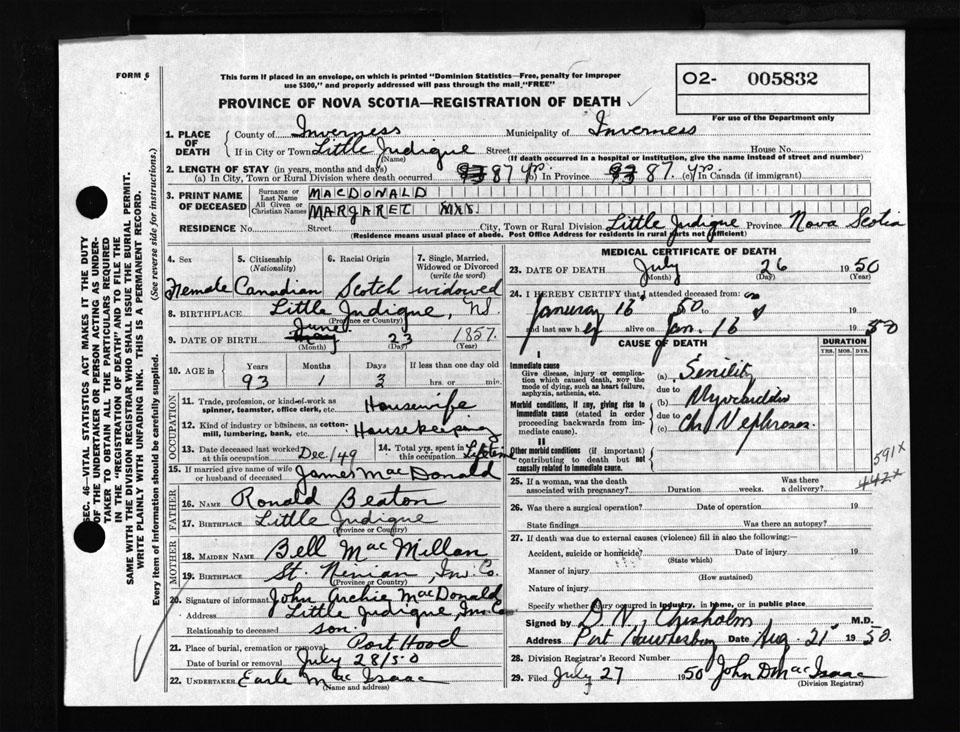 FORM 6
This form if placed in an envelope, on which is printed "Dominion Statistics—Free, penalty for improper
use $300," and properly addressed will pass through the mail "FREE"
O2- 005832
For use of the Department only
PROVINCE OF NOVA SCOTIA—REGISTRATION OF DEATH
1. PLACE OF DEATH
County of Inverness Municipality of Inverness
If in City or Town Little Judique Street House No.
(Name) (If death occurred in a hospital or institution, give the name instead of street and number)
2. LENGTH OF STAY (in years, months and days)
(a) In City, Town or Rural Division where death occurred 93 87 yr. (b) In Province 93 87 yr. (c) In Canada (if immigrant)
3. PRINT NAME OF DECEASED
Surname or Last Name MACDONALD
All Given or Christian Names MARGARET MRS.
RESIDENCE No. Street City, Town or Rural Division Little Judique Province Nova Scotia
(Residence means usual place of abode. Post Office Address for residents in rural parts not sufficient)
4. Sex 5. Citizenship (Nationality) 6. Racial Origin 7. Single, Married, Widowed or Divorced (write the word)
Female Canadian Scotch widowed
8. BIRTHPLACE Little Judique, NS.
(Province or Country)
June
9. DATE OF BIRTH May 23 1857.
(Month) (Day) (Year)
10. AGE in Years Months Days If less than one day old
93 1 3 hrs. or min.
OCCUPATION
11. Trade, profession, or kind of work as spinner, teamster, office clerk, etc. Housewife
12. Kind of industry or business, as cotton-mill, lumbering, bank, etc. Housekeeping
13. Date deceased last worked at this occupation Dec/49 14. Total yrs. spent in this occupation Lifetime
15. If married give name of wife or husband of deceased James MacDonald
FATHER
16. NAME Ronald Beaton
17. BIRTHPLACE Little Judique
(Province or Country)
MOTHER
18. MAIDEN NAME Bell MacMillan
19. BIRTHPLACE St. Ninian, Inv. Co.
(Province or Country)
20. Signature of informant John Archie MacDonald
Address Little Judique, Inv Co
Relationship to deceased son.
21. Place of burial, cremation or removal Port Hood
Date of burial or removal July 28/50
22. UNDERTAKER Earle MacIsaac
(Name and address)
MEDICAL CERTIFICATE OF DEATH
23. DATE OF DEATH July 26 1950
(Month) (Day) (Year)
24. I HEREBY CERTIFY that I attended deceased from: on
January 16 50 to 19
and last saw her alive on Jan. 16 1950
CAUSE OF DEATH
DURATION
YRS. MOS. DYS.
I
Immediate cause
Give disease, injury or complication which caused death, not the mode of dying, such as heart failure, asphyxia, asthenia, etc.
(a) Senility
due to
Morbid conditions, if any, giving rise to immediate cause (stated in order proceeding backwards from immediate cause).
(b) Myocarditis
due to
(c) Chr Nephrosis.
II
Other morbid conditions (if important) contributing to death but not causally related to immediate cause.
591x
442x
25. If a woman, was the death associated with pregnancy? Duration weeks. Was there a delivery?
26. Was there a surgical operation? Date of operation 19
State findings Was there an autopsy?
27. If death was due to external causes (violence) fill in also the following:—
Accident, suicide or homicide? Date of injury 19
(State which)
Manner of injury
(How sustained)
Nature of injury
Specify whether injury occurred in industry, in home, or in public place
Signed by D. N. Chisholm M.D.
Address Port Hawkesbury Date Aug. 21 1950.
28. Division Registrar's Record Number
29. Filed July 27 1950 John D MacIsaac
(Division Registrar)
SEC. 46—VITAL STATISTICS ACT MAKES IT THE DUTY
OF THE UNDERTAKER OR PERSON ACTING AS UNDER-
TAKER TO OBTAIN ALL THE PARTICULARS REQUIRED
IN THE "REGISTRATION OF DEATH" AND TO FILE THE
SAME WITH THE DIVISION REGISTRAR WHO SHALL ISSUE THE BURIAL PERMIT.
WRITE PLAINLY WITH UNFADING INK. THIS IS A PERMANENT RECORD.
Every item of information should be carefully supplied. (See reverse side for instructions.)